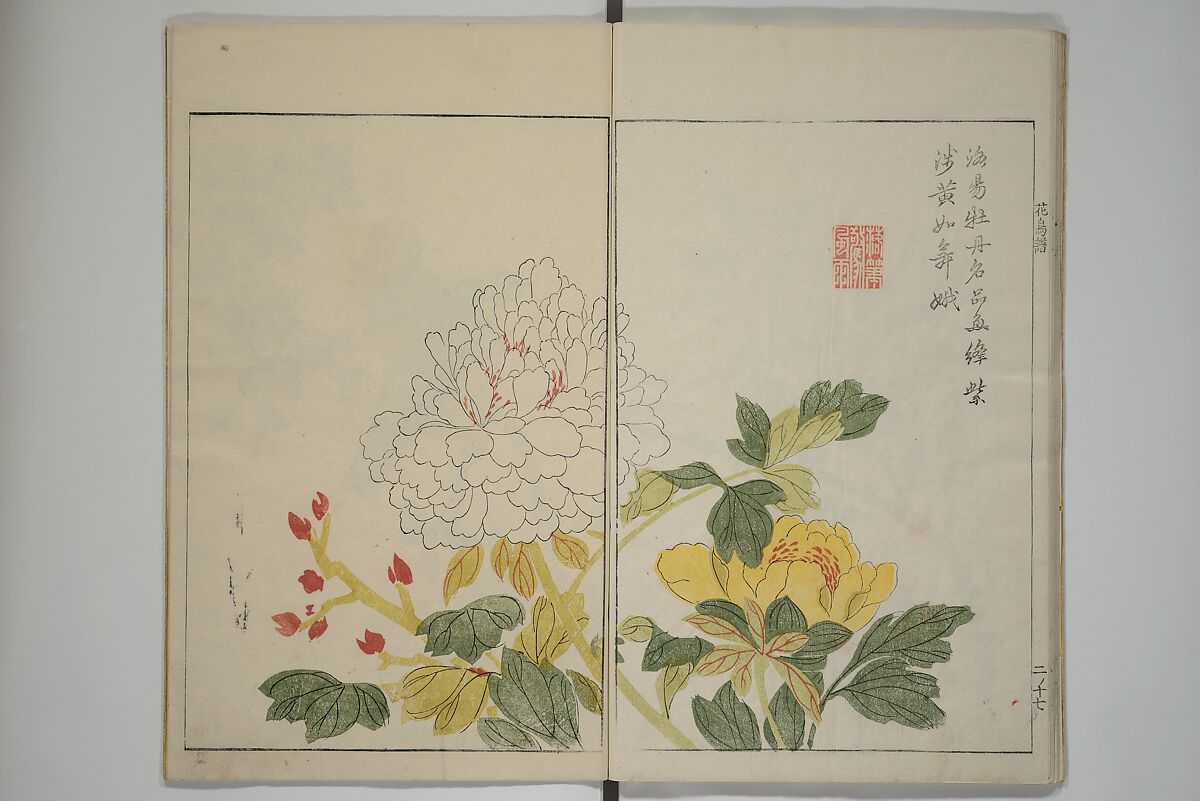 洛陽牡丹名品多絳紫
浅黄如舞娥
花鳥譜
二ノ十七